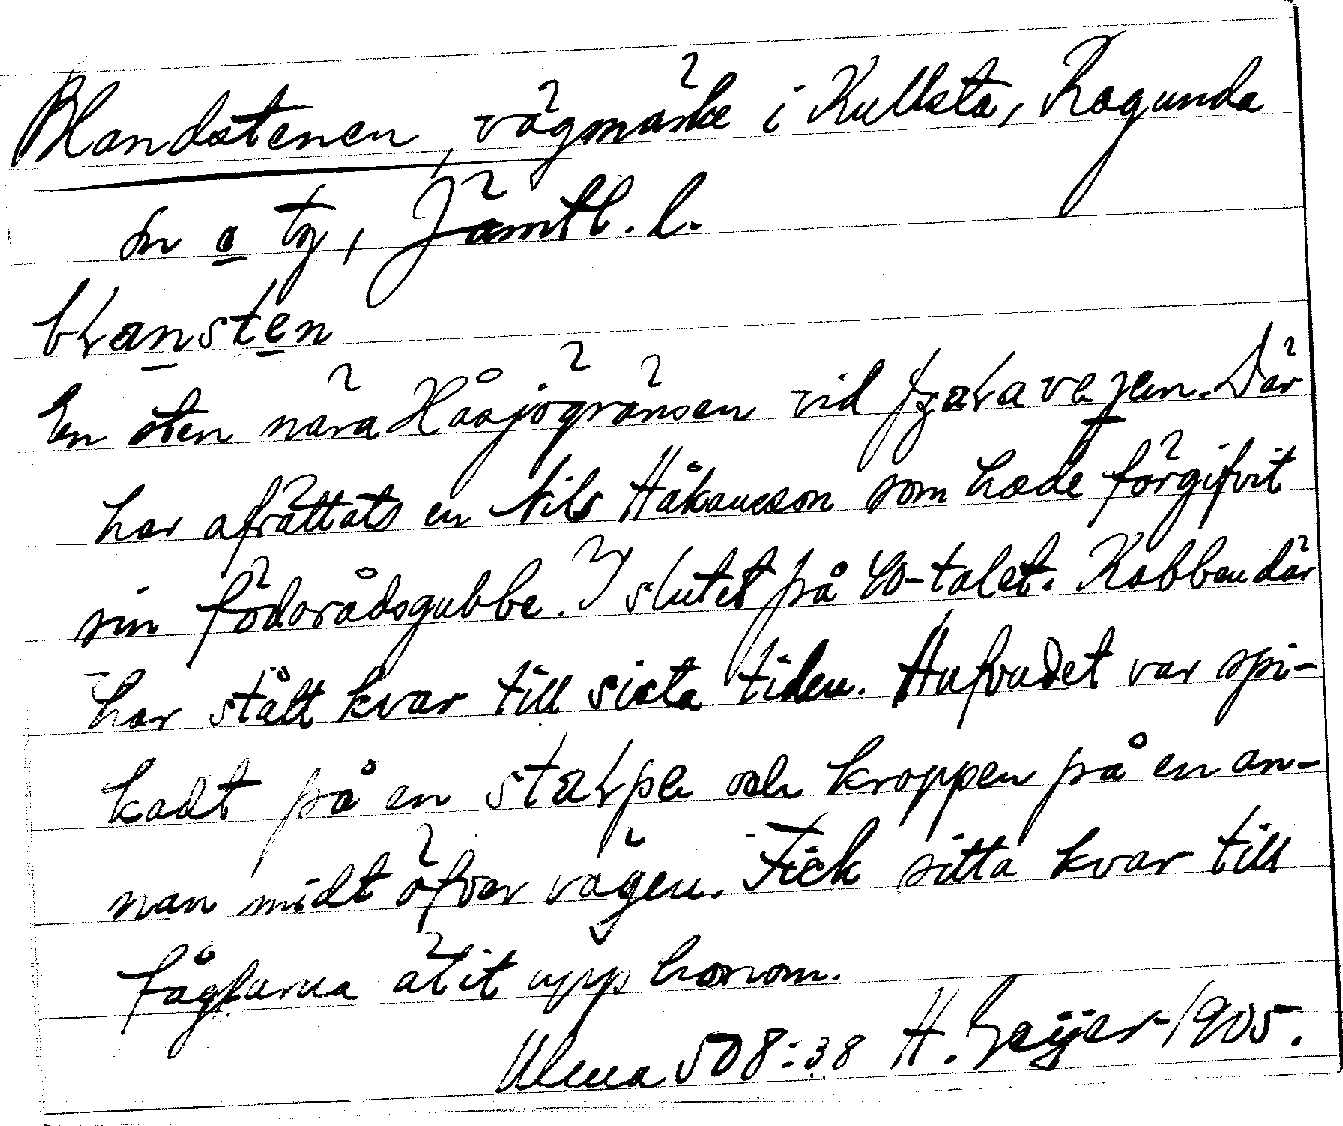 Blandstenen, vägmärke i Kullsta, Ragunda
sn o tg, Jämtl. l.
blansten
En sten nära Håsjögränsen vid fjalavegen. Där
har afrättats en Nils Håkansson som hade förgifvit
sin födorådsgubbe. I slutet på 40-talet. Kabben där
har stått kvar till sista tiden. Hufvudet var spi-
kadt på en stålpe och kroppen på en an-
nan midt öfver vägen. Fick sitta kvar till
fåglarna ätit upp honom.
Ulma 508:38 H. Geijer 1905.